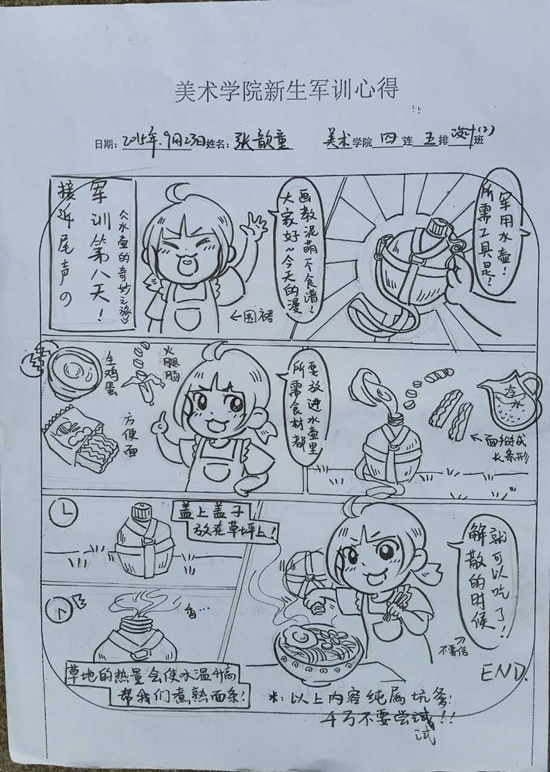 美术学院新生军训心得
日期：2015年.9月23日姓名：张歆童 美术学院 四 连 五 排 设计(2) 班
军训第八天！
接近尾声の
《水壶的奇妙之旅》
←围裙
大家好~今天的漫
画教泥萌个食谱！
军用水壶！
所需工具是：
生鸡蛋
火腿肠
方便面
所需食材都
要放进水壶里
冷水
←面掰成
长条形
盖上盖子
放在草坪上！
香…
草地的热量会使水温升高
帮我们煮熟面条！
解散的时候
就可以吃了！！
不要信
END.
*：以上内容纯属坑爹
千万不要尝试！！
试